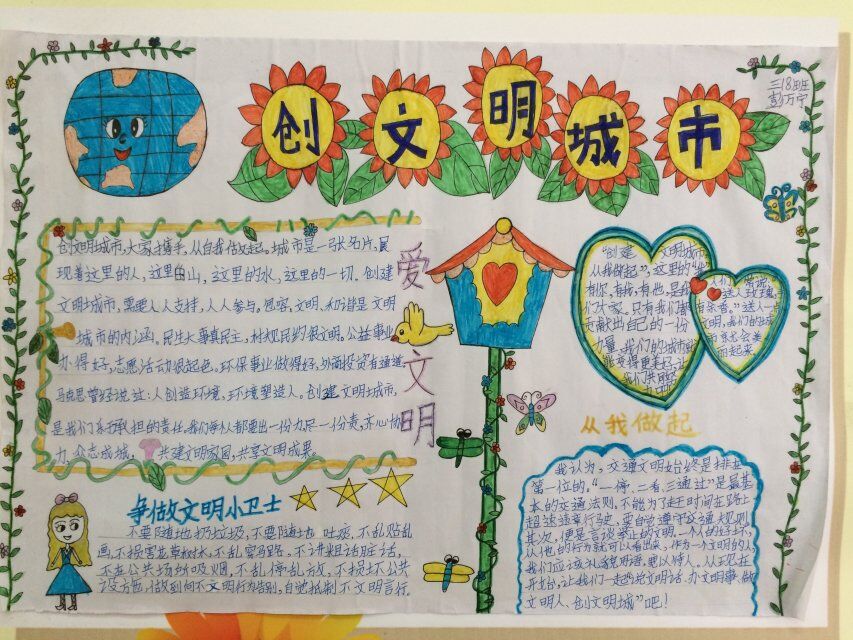 创文明城市
三18班
彭万宁
创文明城市,大家携手,从自我做起。城市是一张名片,展
现着这里的人,这里的山,这里的水,这里的一切。创建
文明城市,需要人人支持,人人参与。包容,文明,和谐是文明
城市的内涵。民生大事真民主,村规民约很文明。公益事业
办得好,志愿活动很起色,环保事业做得好,外商投资有通道
马克思曾经说过:人创造环境,环境塑造人。创建文明城市,
是我们承担的责任,我们每人都要出一份力尽一份责,齐心协
力,众志成城,共建文明家园,共享文明成果。
爱文明
争做文明小卫士
不要随地扔垃圾,不要随地吐痰,不乱贴乱
画不损害花草树木,不乱穿马路,不讲粗话脏话,
不在公共场所吸烟,不乱停乱放,不损坏公共
设施,做到向不文明行为告别,自觉抵制不文明言行。
"创建文明城市
从我做起",这里的"我"
有你,有我,有他,是我
们大家。只有我们都
贡献出自己的一份
力量,我们的城市
能变得更美好,让
我们共同
人们常说,
"送人玫瑰,
手有余香。"送人一
文明,我们的城
市就会美
丽起来
从我做起
我认为,交通文明始终是排在
第一位的。"一停,二看,三通过"是最基
本的交通法则,不能为了赶时间在路上
超速逆章行驶,要自觉遵守交通规则
其次,便是言谈举止的文明。一个人的好坏,
从他的行为就可以看出来,作为一个文明的人,
我们应该礼貌用语,更以待人。从现在
开始,让我们一起"说文明话、办文明事、做
文明人、创文明城"吧!